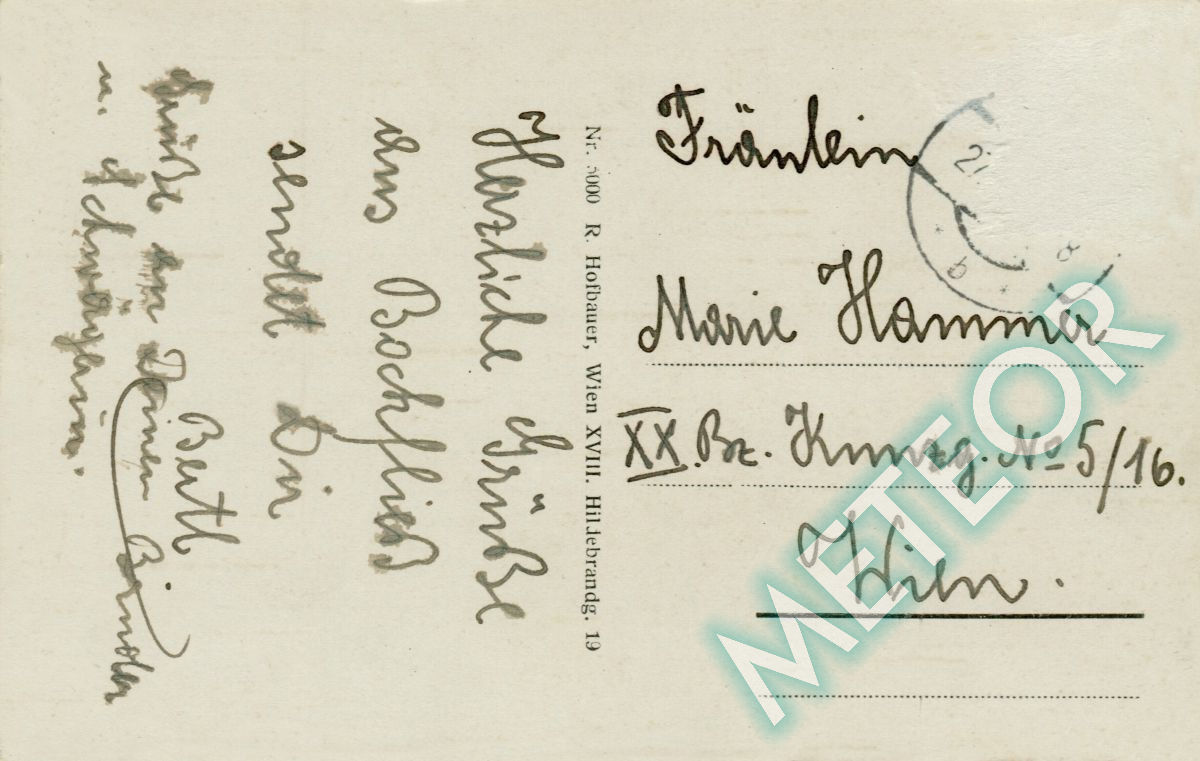 Herzliche Grüße
aus Bockfließ
sendet Dir
Bertl
Grüße an Deinen Bruder
u. Schwägerin.
Nr. 5000 R. Hofbauer, Wien XVIII. Hildebrandg. 19
Fräulein
Marie Hammer
XX. Bz. Kunzg. No 5/16.
Wien.
METEOR